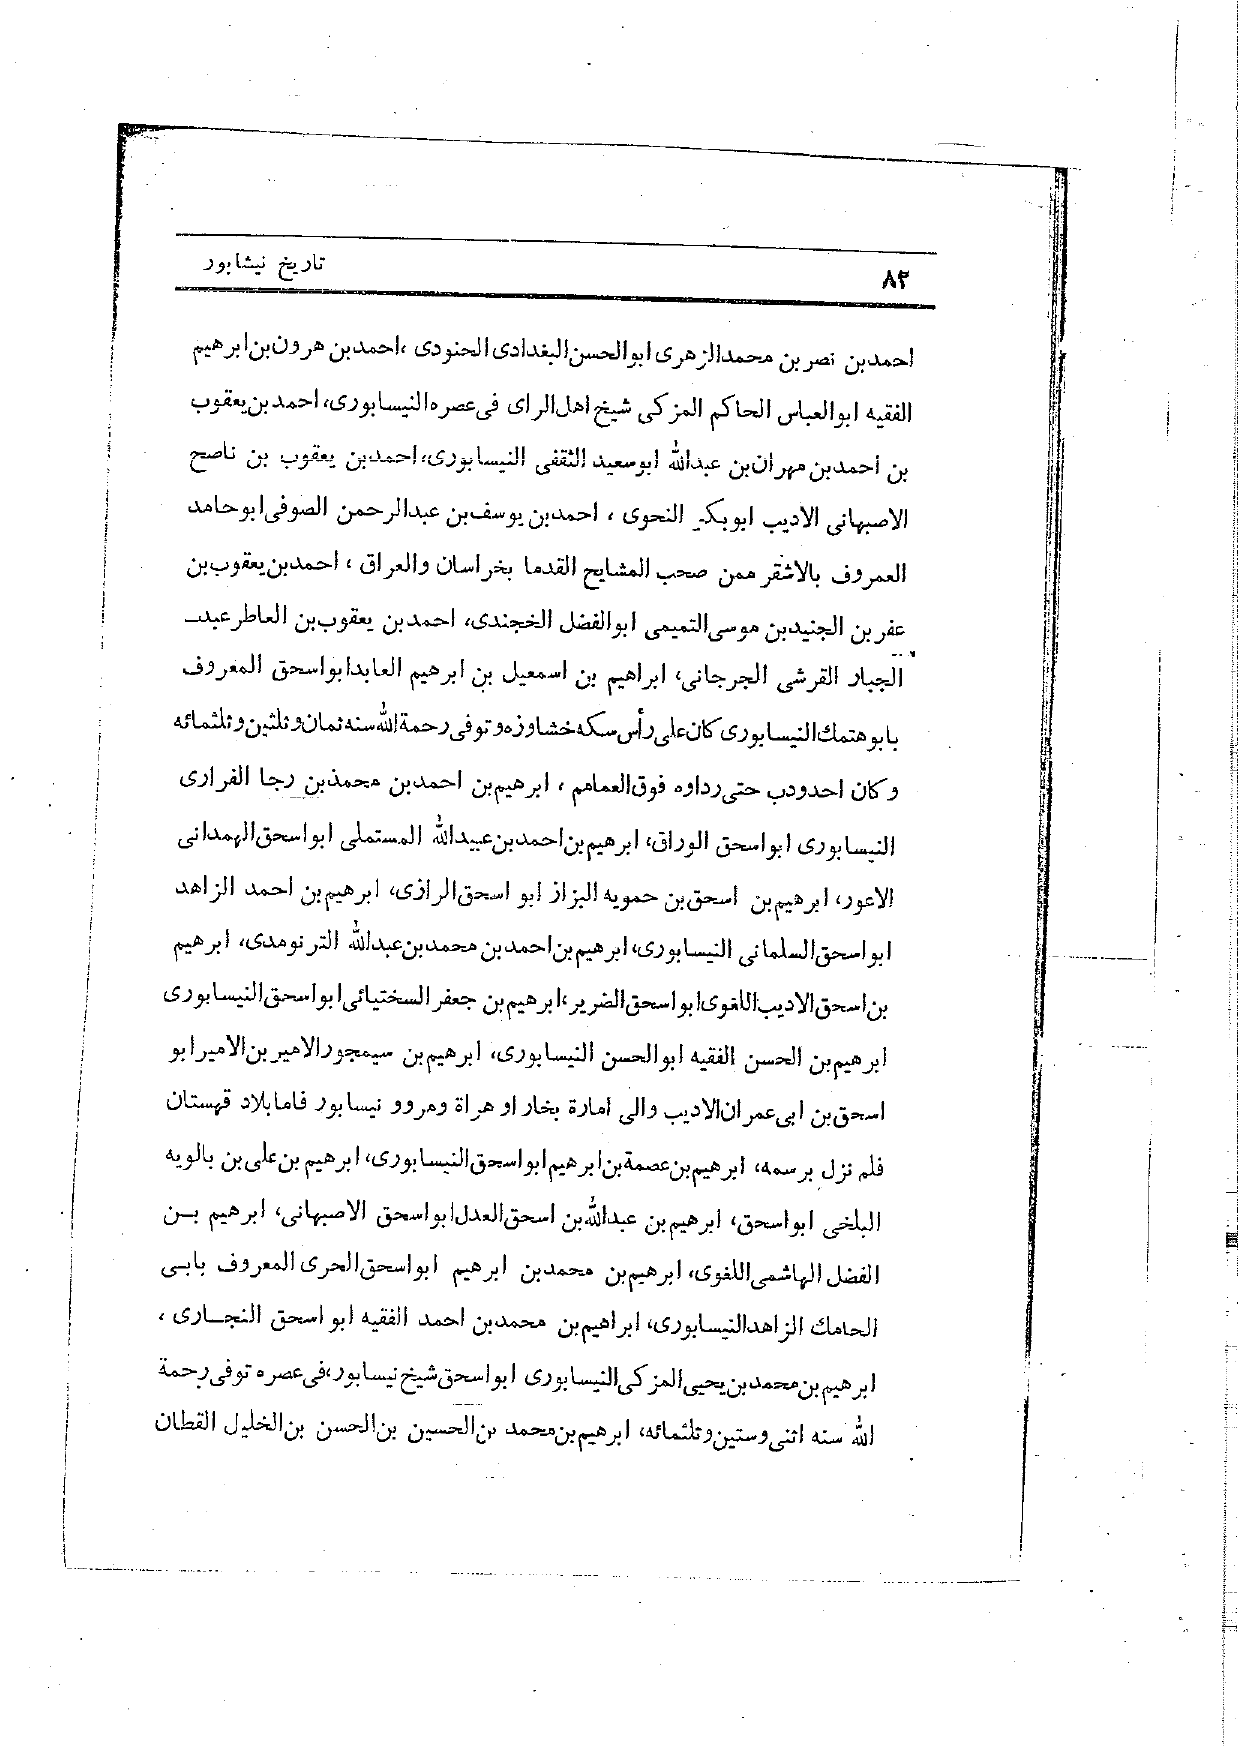 تاریخ نیشابور
۸۲
احمدبن نصر بن محمدالزهری ابوالحسن‌البغدادی الحنودی ،احمدبن هرون‌بن‌ابرهیم
الفقیه ابوالعباس الحاکم المزکی شیخ اهل‌الرای فی‌عصره‌النیسابوری، احمدبن‌یعقوب
بن احمدبن‌مهران‌بن عبدالله ابوسعید الثقفی النیسابوری، احمدبن یعقوب بن ناصح
الاصبهانی الادیب ابوبکر النحوی ، احمدبن یوسف‌بن عبدالرحمن الصوفی‌ابوحامد
المعروف بالاشقر ممن صحب المشایح القدما بخراسان والعراق ، احمدبن‌یعقوب‌بن
عفربن الجنیدبن موسی‌التمیمی ابوالفضل الخجندی، احمدبن یعقوب‌بن العاطرعبد
الجبار القرشی الجرجانی، ابراهیم بن اسمعیل بن ابرهیم العابدابواسحق المعروف
بابوهتمك‌النیسابوری کان‌علی‌رأس‌سکه‌خشاوزه‌وتوفی‌رحمة‌الله‌سنه‌ثمان‌وثلثین‌وثلثمائه
وکان احدودب حتی‌رداوه فوق‌العمامم ، ابرهیم‌بن احمدبن محمدبن رجا الفراری
النیسابوری ابواسحق الوراق، ابرهیم‌بن‌احمدبن‌عبیدالله المستملی ابواسحق‌الهمدانی
الاعور، ابرهیم‌بن اسحق‌بن حمویه البزاز ابو اسحق‌الرازی، ابرهیم‌بن احمد الزاهد
ابواسحق‌السلمانی النیسابوری، ابرهیم‌بن‌احمدبن محمدبن‌عبدالله الترنومدی، ابرهیم
بن‌اسحق‌الادیب‌اللغوی‌ابواسحق‌الضریر،ابرهیم‌بن جعفرالسختیائی‌ابواسحق‌النیسابوری
ابرهیم‌بن الحسن الفقیه ابوالحسن النیسابوری، ابرهیم‌بن سیمجورالامیربن‌الامیرابو
اسحق‌بن ابی‌عمران‌الادیب والی امارة بخارا و هراة ومرو و نیسابور فامابلاد قهستان
فلم نزل برسمه، ابرهیم‌بن‌عصمة‌بن‌ابرهیم‌ابواسحق‌النیسابوری، ابرهیم‌بن‌علی‌بن بالویه
البلخی ابواسحق، ابرهیم‌بن عبدالله‌بن اسحق‌العدل‌ابواسحق الاصبهانی، ابرهیم بن
الفضل الهاشمی‌اللغوی، ابرهیم‌بن محمدبن ابرهیم ابواسحق‌الحری المعروف بابی
الحامك الزاهدالنیسابوری، ابراهیم‌بن محمدبن احمد الفقیه ابو اسحق النجاری ،
ابرهیم‌بن‌محمدبن‌یحیی‌المزکی‌النیسابوری ابواسحق‌شیخ‌نیسابور،فی‌عصره توفی‌رحمة
الله سنه اثنی‌وستین‌وثلثمائه، ابرهیم‌بن‌محمد بن‌الحسین بن‌الحسن بن‌الخلیل القطان